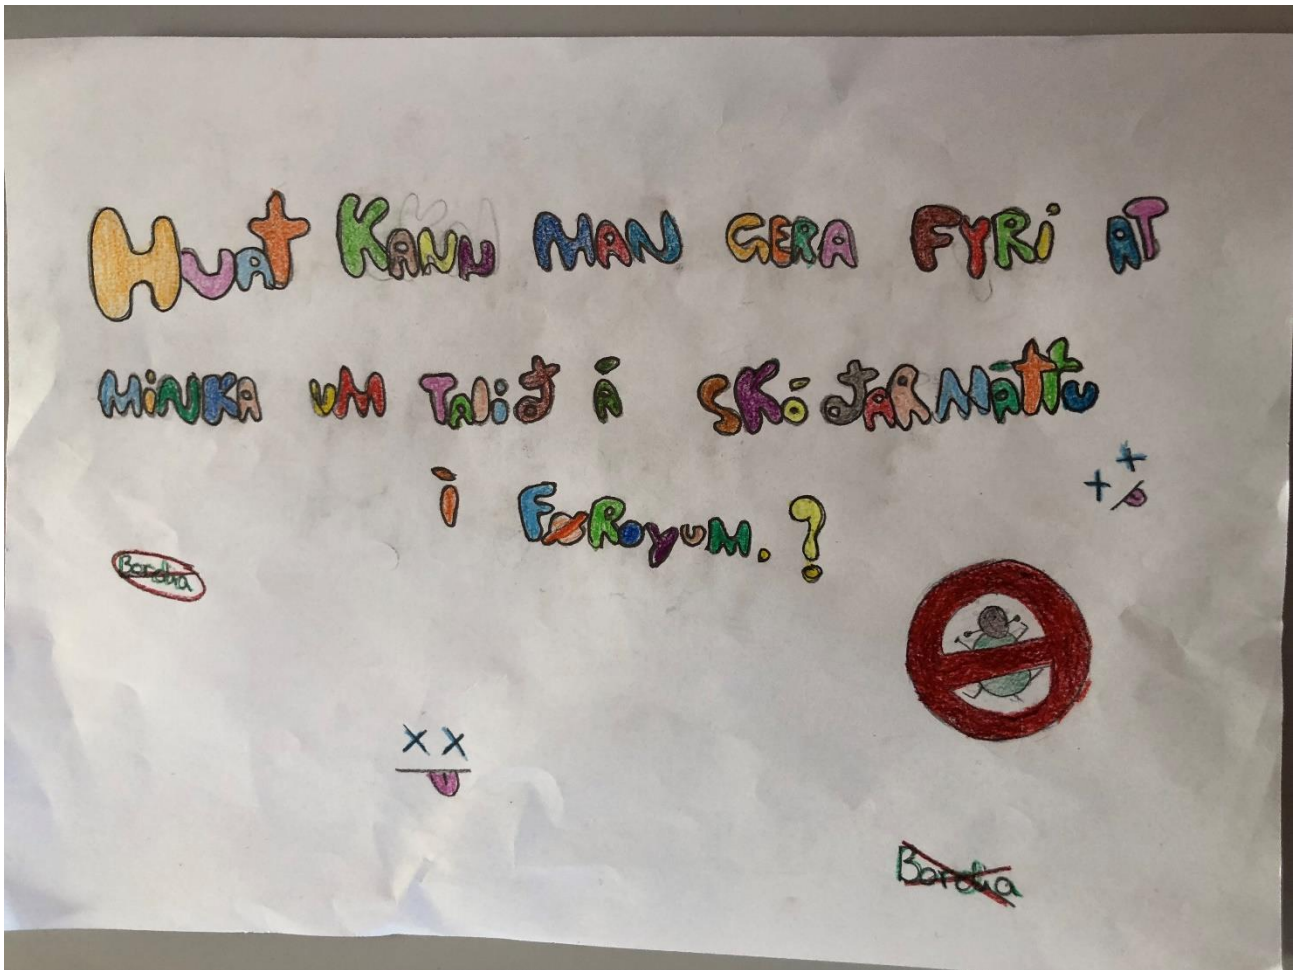 HVAT KANN MAN GERA FYRI AT
MINKA UM TALIÐ Á SKÓÐARMÁTTU
Í FØROYUM.?
Borolia
Borolia